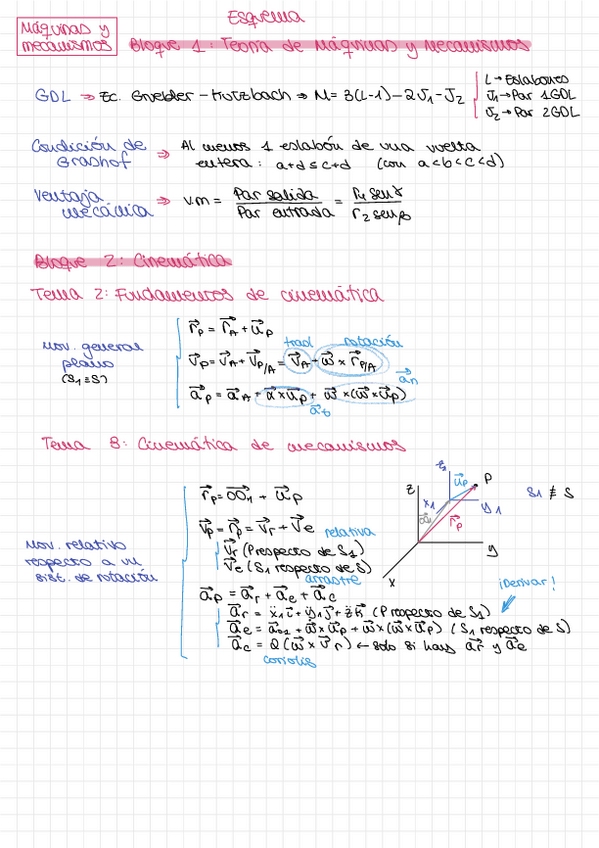 Esquema
Máquinas y
mecanismos
Bloque 1: Teoría de Máquinas y Mecanismos
GDL → Ec. Gruebler - Kutzbach → M = 3(L-1) - 2J₁ - J₂
L → Eslabones
J₁ → Par 1GDL
J₂ → Par 2GDL
Condición de
Grashof
⇒ Al menos 1 eslabón de una vuelta
entera: a+d ≤ c+d (con a<b<c<d)
Ventaja
mecánica
⇒ v.m = Par salida / Par entrada = r₄ sen γ / r₂ sen β
Bloque 2: Cinemática
Tema 2: Fundamentos de cinemática
Mov. general
plano
(S₁≡S)
r⃗p = r⃗A + u⃗p
trasl rotación
v⃗p = v⃗A + v⃗P/A = v⃗A + ω⃗ × r⃗P/A
a⃗n
a⃗p = a⃗A + α⃗ × u⃗p + ω⃗ × (ω⃗ × u⃗p)
a⃗t
Tema 3: Cinemática de mecanismos
Mov. relativo
respecto a un
sist. de rotación
r⃗p = OO⃗₁ + u⃗p
v⃗p = r⃗p = v⃗r + v⃗e relativa
v⃗r (P respecto de S₁)
v⃗e (S₁ respecto de S)
arrastre
a⃗p = a⃗r + a⃗e + a⃗c
a⃗r = ẍ₁ i⃗ + ÿ₁ j⃗ + z̈ k⃗ (P respecto de S₁)
a⃗e = a⃗o₁ + ω⃗ × u⃗p + ω⃗ × (ω⃗ × u⃗p) (S₁ respecto de S)
a⃗c = 2(ω⃗ × v⃗r) ← solo si hay a⃗r y a⃗e
coriolis
¡Derivar!
z
z₁
u⃗p
P
x₁
y₁
r⃗p
y
x
S₁ ≢ S